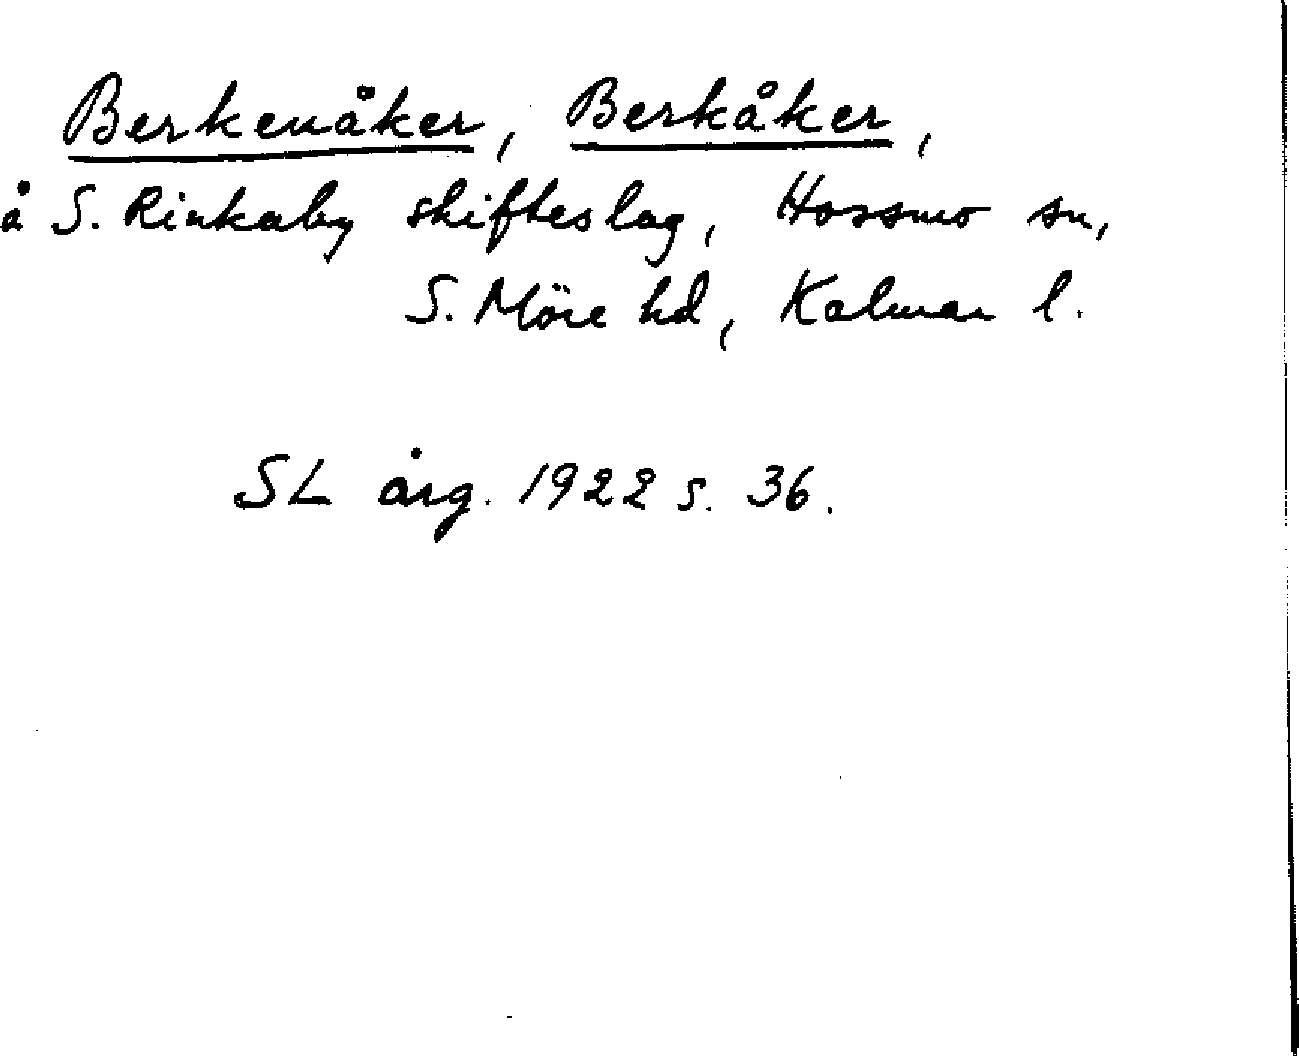 Berkenåker, Berkåker,
å S. Rinkaby skifteslag, Hossmo sn,
S. Möre hd, Kalmar l.
SL årg. 1922 s. 36.